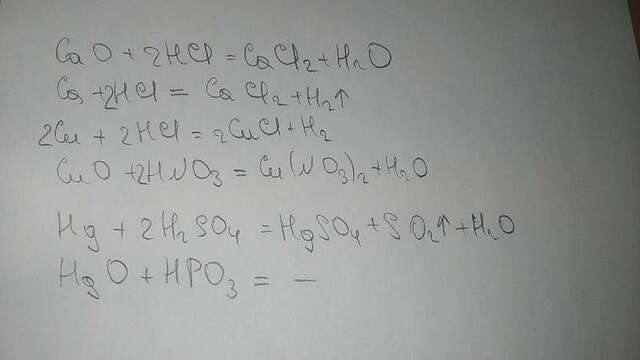 CaO + 2HCl = CaCl₂ + H₂O
Ca + 2HCl = CaCl₂ + H₂↑
2Cu + 2HCl = 2CuCl + H₂
CuO + 2HNO₃ = Cu(NO₃)₂ + H₂O
Hg + 2H₂SO₄ = HgSO₄ + SO₂↑ + H₂O
HgO + HPO₃ = —